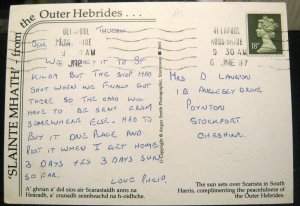 'SLAINTE MHATH' from the Outer Hebrides . . .
ULLAPOOL
ROSS-SHIRE
9 30 AM
6 JUNE 87
18P
THURSDAY
DEAR MUM,
WE MADE IT TO ST
KILDA BUT THE SHOP HAD
SHUT WHEN WE FINALLY GOT
THERE SO THE CARD WILL
HAVE TO BE SENT FROM
SOMEWHERE ELSE. HAD TO
BUY IT ONE PLACE AND
POST IT WHEN I GET HOME
3 DAYS YES 3 DAYS SUN
SO FAR.
LOVE PHILIP.
MRS D LANGTON
18 ANGLESEY DRIVE
POYNTON
STOCKPORT
CHESHIRE.
A' ghrian a' dol sios air Scarastaidh anns na
Hearadh, a' crunadh seimheachd na h-oidhche.
The sun sets over Scarista in South
Harris, complimenting the peacefulness of
the Outer Hebrides.